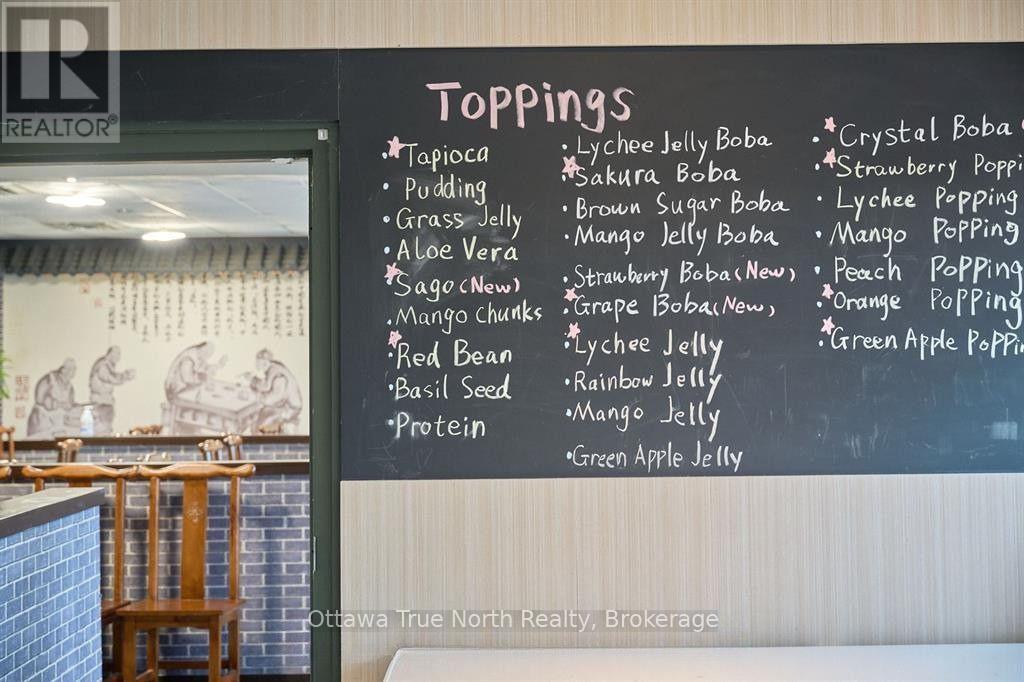 REALTOR®
Toppings
Tapioca
Pudding
Grass Jelly
Aloe Vera
Sago (New)
Mango chunks
Red Bean
Basil Seed
Protein
Lychee Jelly Boba
Sakura Boba
Brown Sugar Boba
Mango Jelly Boba
Strawberry Boba (New)
Grape Boba (New)
Lychee Jelly
Rainbow Jelly
Mango Jelly
Green Apple Jelly
Crystal Boba (
Strawberry Poppi
Lychee Popping
Mango Popping
Peach Popping
Orange Popping
Green Apple Poppin
Ottawa True North Realty, Brokerage